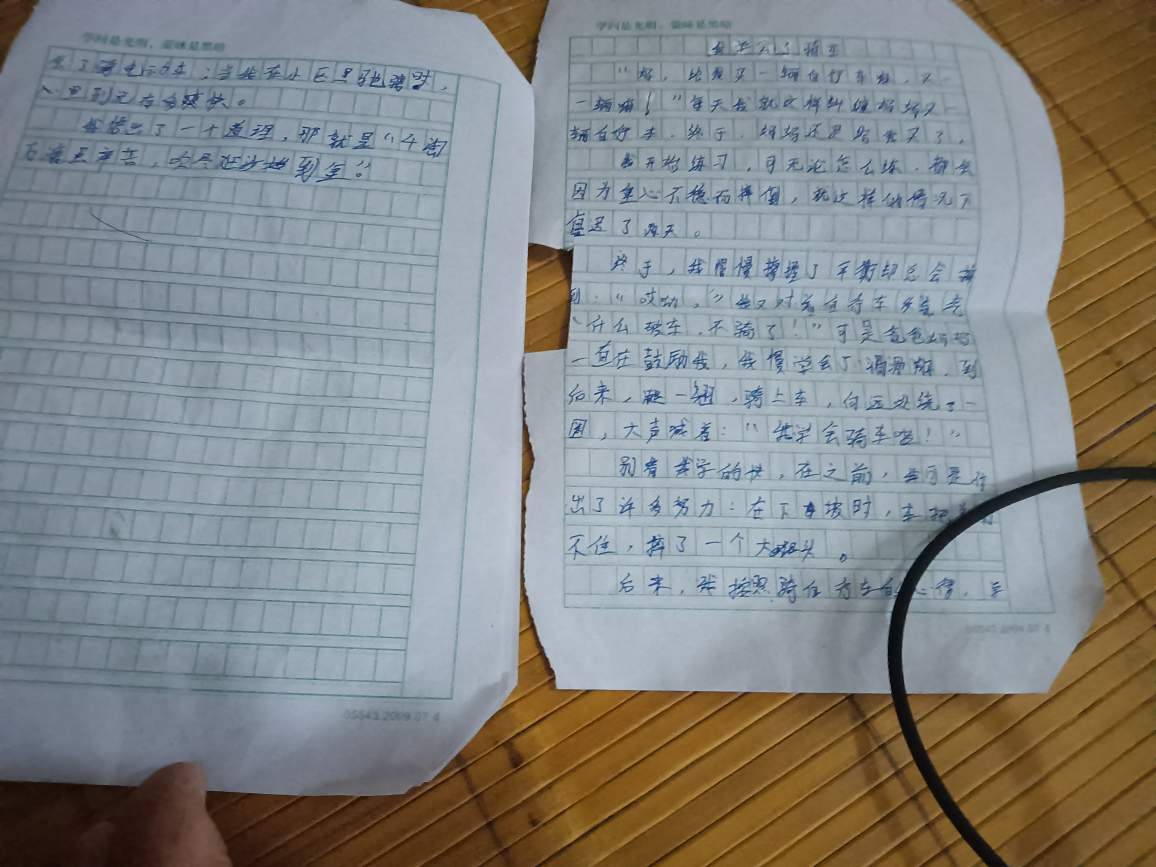 学问是光明，蒙昧是黑暗
我学会了骑车
“妈，给我买一辆自行车嘛，买一
一辆嘛！”每天我就这样纠缠妈妈买一
辆自行车，终于，妈妈还是给我买了，
我开始练习，可无论怎么练，都会
因为重心不稳而摔倒，就这样的情况下
复习了两天。
终于，我慢慢掌握了平衡却总会摔
到：“哎呦，”我又对着自行车发
“什么破车，不骑了！”可是爸爸妈妈
一直在鼓励我，我慢学会了，到
后来，一，骑上车，向远处绕了一
圈，大声喊着：“我学会骑车啦！”
别看我学的快，在之前，我可是付
出了许多努力：在下坡时，车把
不住，摔了一个大跟头。
后来，我按照骑自行车的心得，学
05543.2009.07.6
学问是光明，蒙昧是黑暗
会了骑电动车；当我在小区里驰骋时，
心里别无存多愉快。
我悟出了一个道理，那就是“千淘
万漉虽辛苦，吹尽狂沙始到金”。
05543.2009.07.6